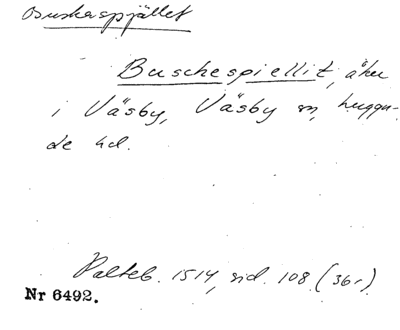 Buskaspjället
Buschespiellit, åker
i Väsby, Väsby sn, Luggu-
de hd.
Palteb. 1514, sid. 108 (36r)
Nr 6492.